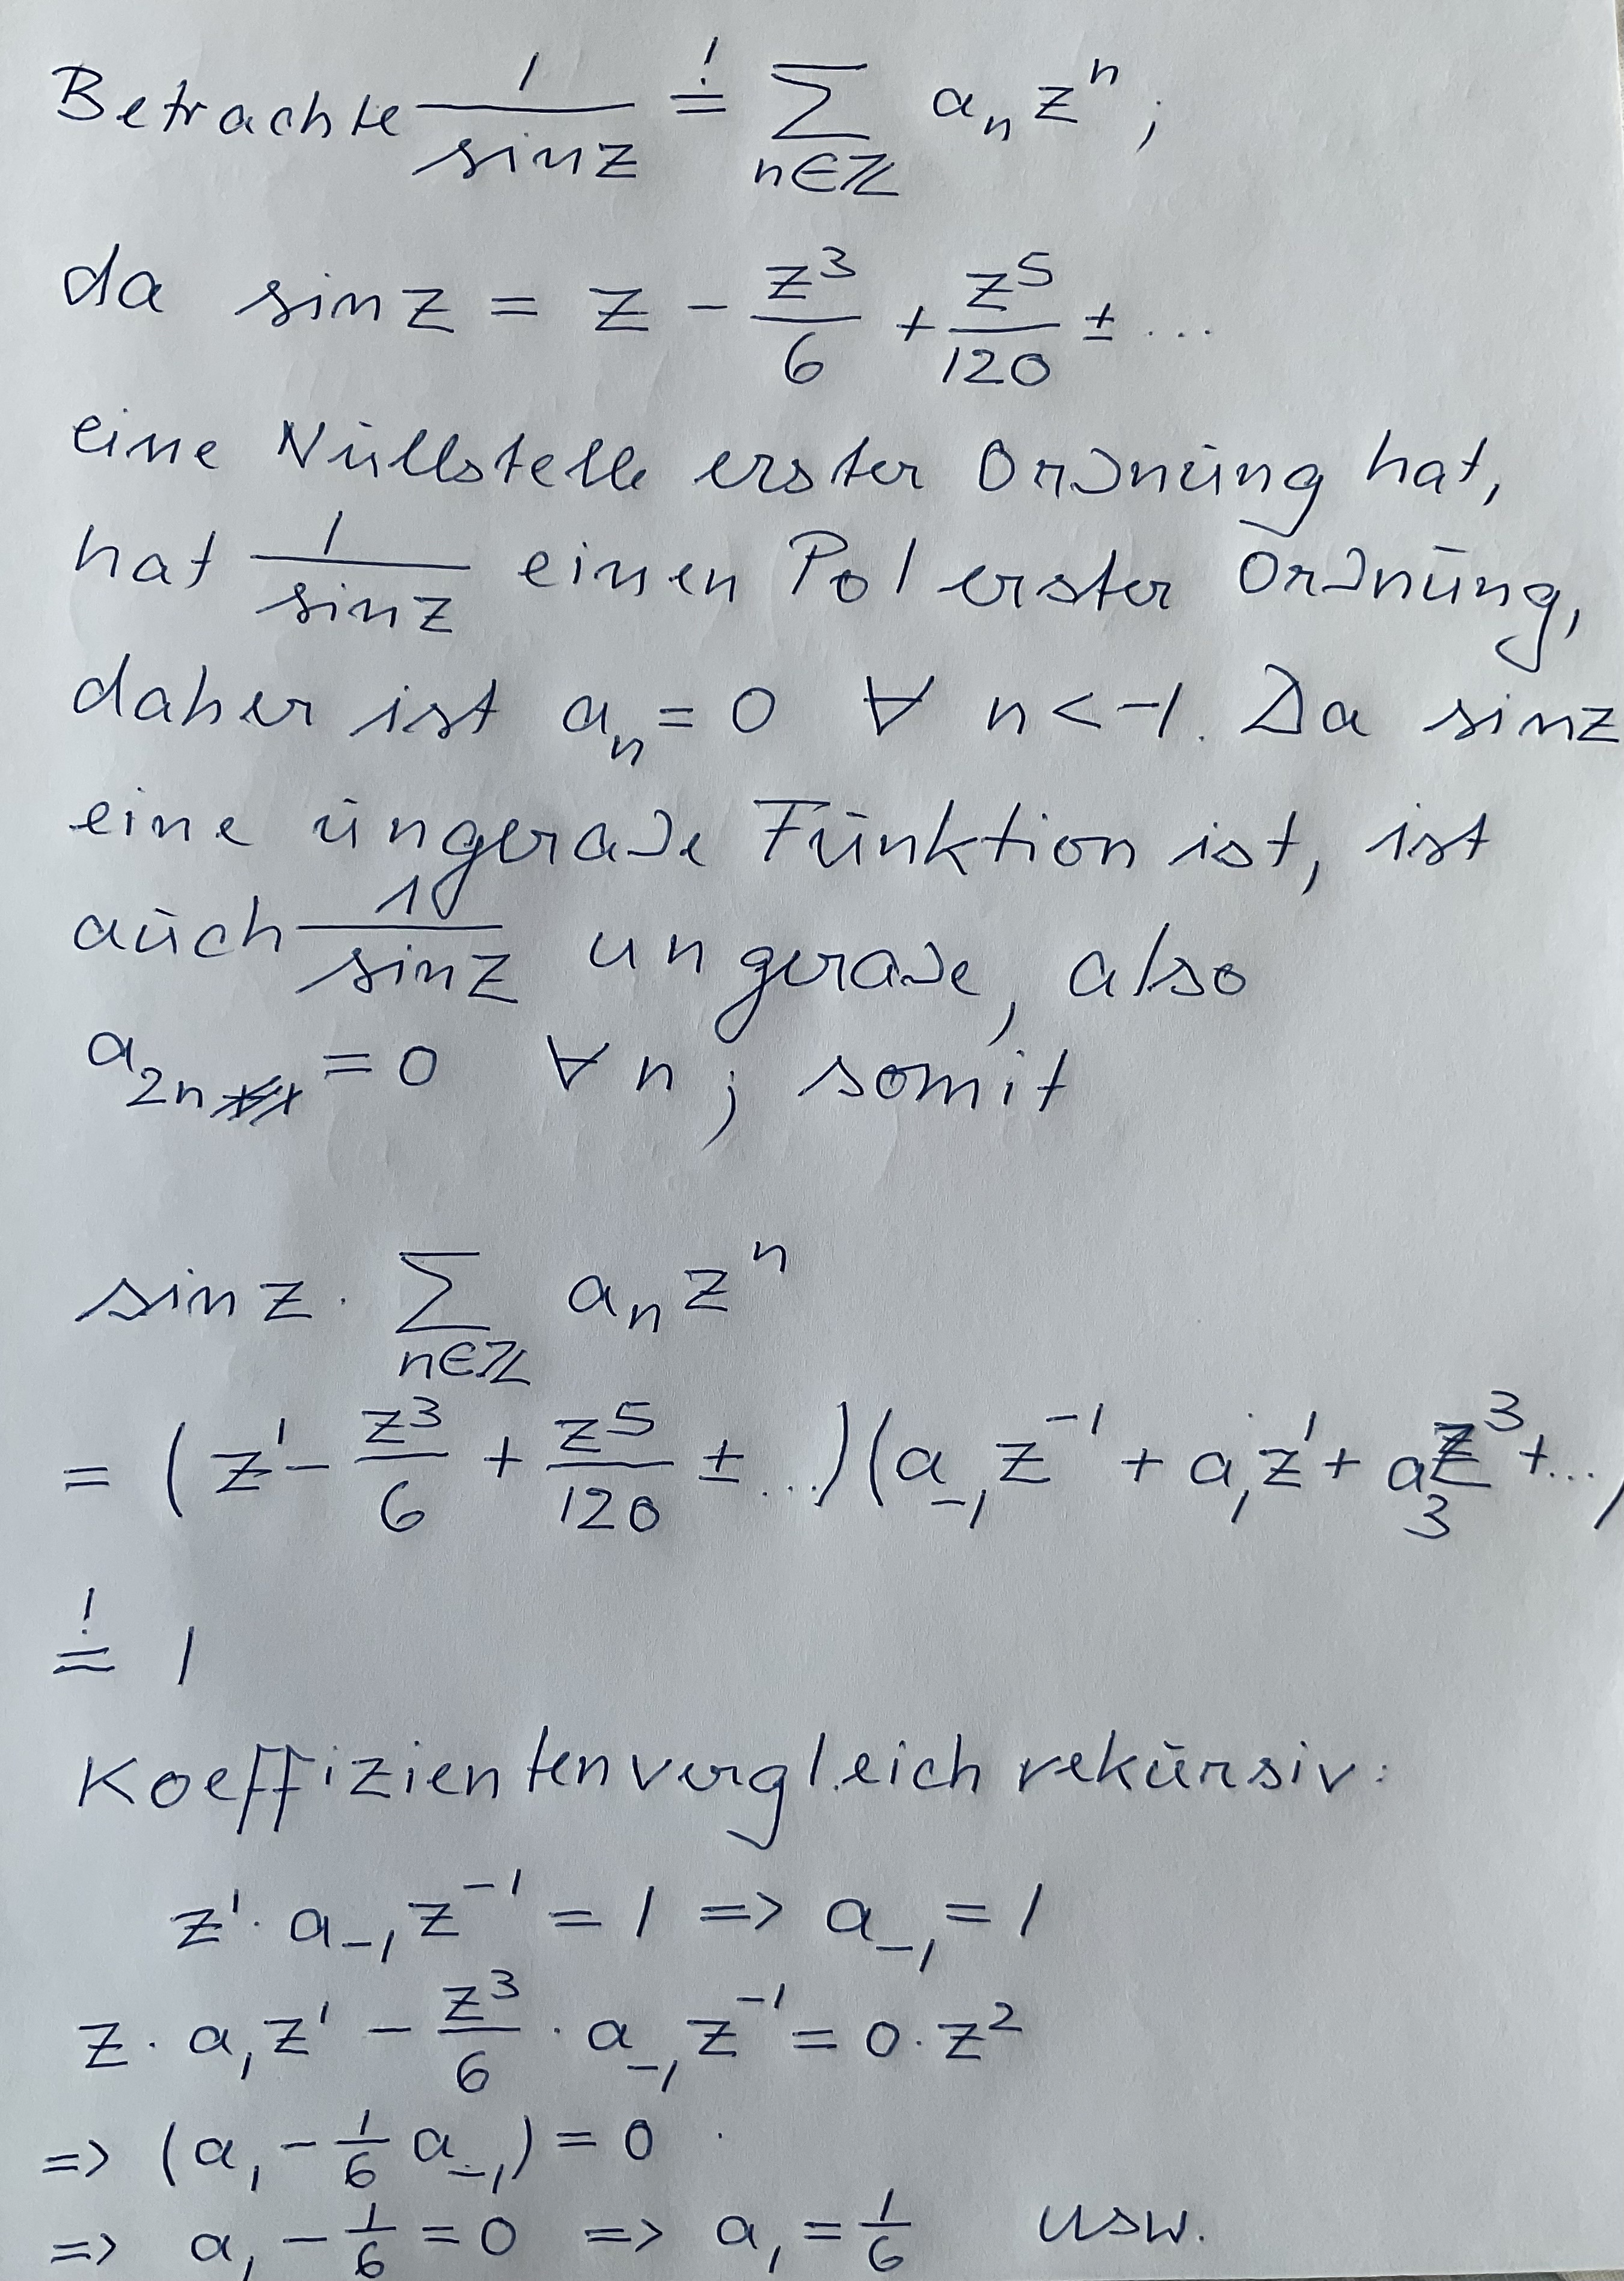 Betrachte 1/sin z =! ∑_{n∈ℤ} a_n z^n ;
da sin z = z - z^3/6 + z^5/120 ± ...
eine Nullstelle erster Ordnung hat,
hat 1/sin z einen Pol erster Ordnung,
daher ist a_n = 0 ∀ n < -1. Da sin z
eine ungerade Funktion ist, ist
auch 1/sin z ungerade, also
a_{2n} = 0 ∀ n ; somit
sin z · ∑_{n∈ℤ} a_n z^n
= (z^1 - z^3/6 + z^5/120 ± ...)(a_{-1} z^{-1} + a_1 z^1 + a_3 z^3 + ...)
=! 1
Koeffizientenvergleich rekursiv:
z^1 · a_{-1} z^{-1} = 1 => a_{-1} = 1
z · a_1 z^1 - z^3/6 · a_{-1} z^{-1} = 0 · z^2
=> (a_1 - 1/6 a_{-1}) = 0
=> a_1 - 1/6 = 0 => a_1 = 1/6 usw.